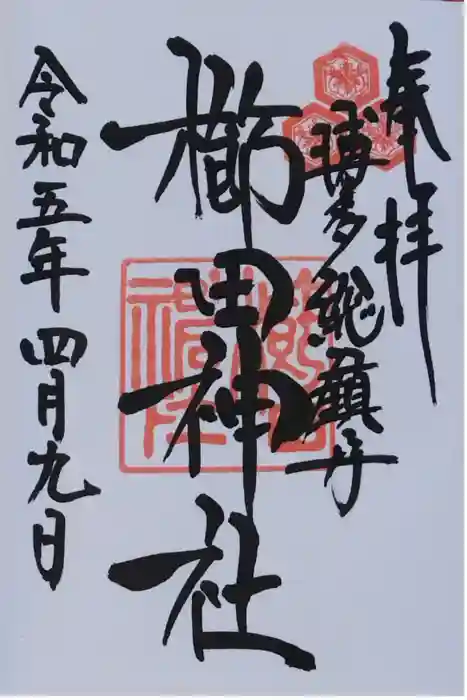 奉拝
博多総鎮守
櫛田神社
令和五年四月九日